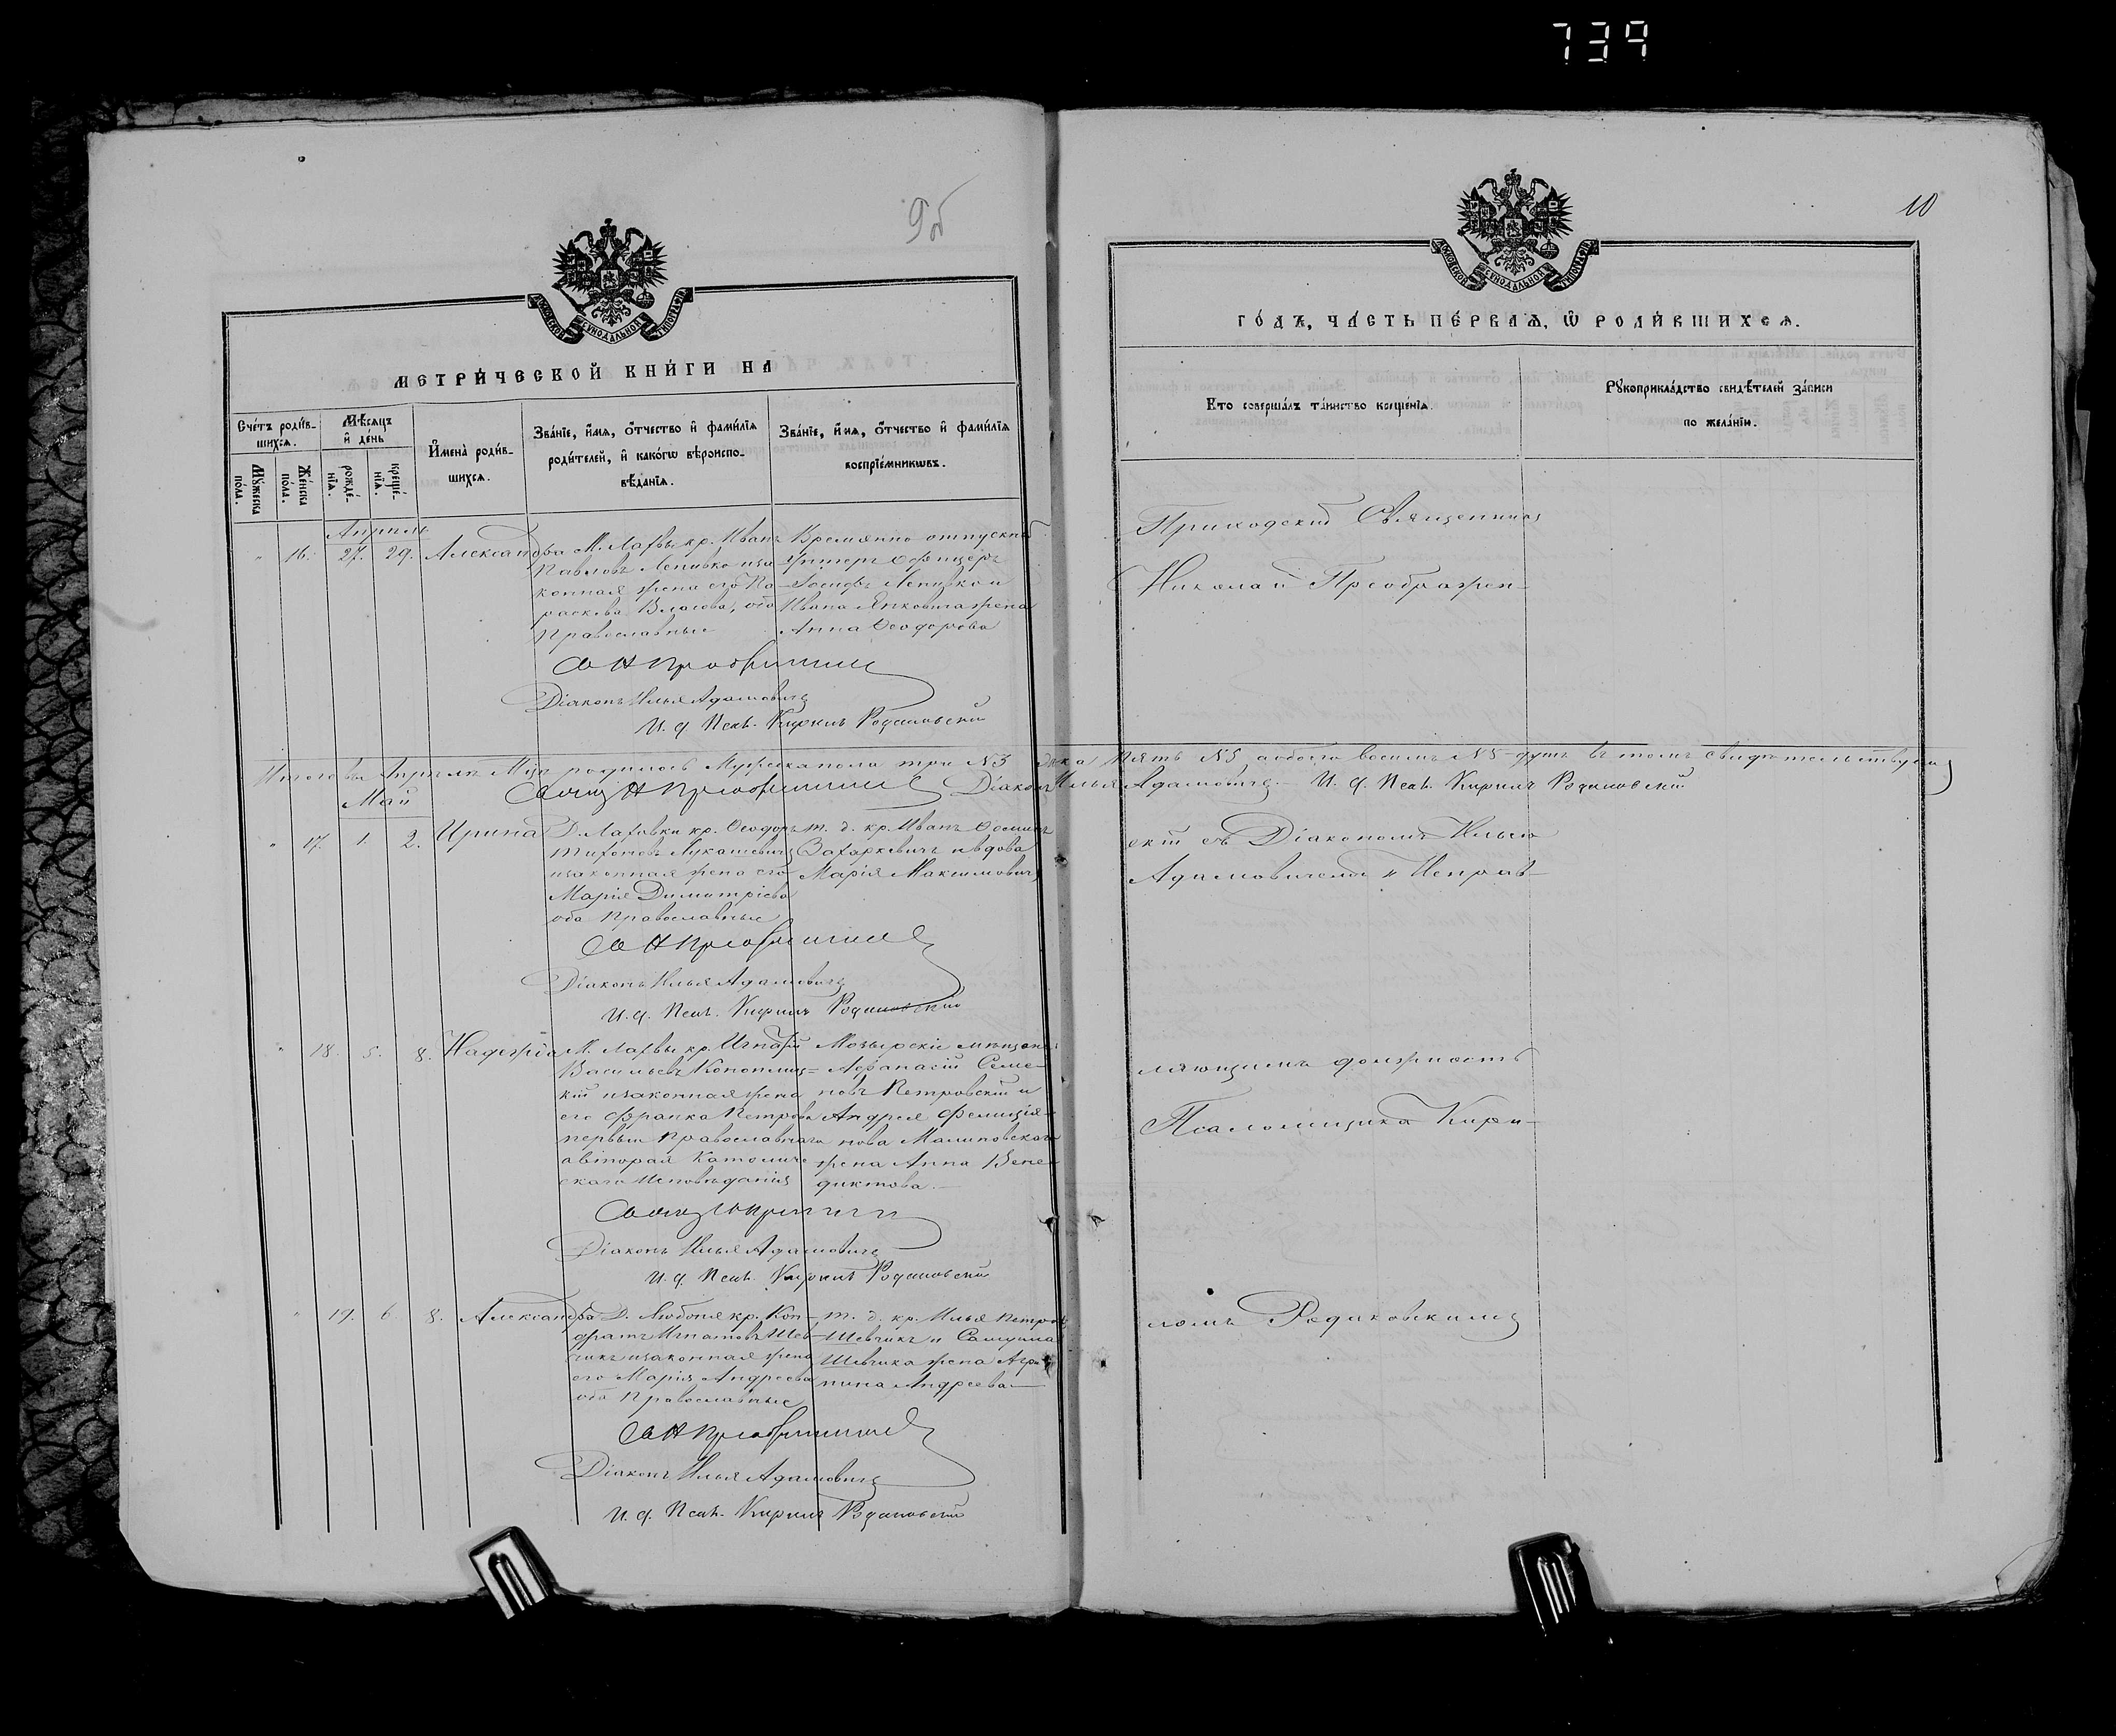 739
9б
МОСКОВСКОЙ СУНОДАЛЬНОЙ ТИПОГРАФІИ
МЕТРИ́ЧЕСКОЙ КНИ́ГИ НА
Сче́тъ роди́в-
шихсѧ.
Мѣ́сѧцъ
и҆ де́нь
И҆мена̀ роди́в-
шихсѧ.
Зва́нїе, и҆́мѧ, ѻ҆́тчество и҆ фами́лїѧ
роди́телей, и҆ како́гѡ вѣроиспо-
вѣ́данїѧ.
Зва́нїе, и҆́мѧ, ѻ҆́тчество и҆ фами́лїѧ
воспрїе́мникѡвъ.
Мꙋ́жеска
по́ла.
Же́нска
пола.
рожде́-
нїѧ.
креще́-
нїѧ.
Апрѣль
" 16. 27. 29. Александра
М. Лахвы кр. Иванъ
Павловъ Лепивко иза
конная жена его Па-
раскева Власова, оба
Православные
Временно отпускн
Унтеръ Офицеръ
Іосифъ Лепивко и
Ивана Янковича жена
Анна Ѳеодорова
Діаконъ Илья Адамовичъ
И. д. Псал. Кирилъ Родаковскій
Итого въ Апрѣлѣ М-цѣ родилось Мужска пола три №3 женска пять №5, а обоего восемь №8 душъ въ томъ свидѣтельствуемъ
Діаконъ Илья Адамовичъ И. д. Псал. Кирилъ Родаковскій
Май
" 17. 1. 2. Ирина
Д. Лаховки кр. Ѳеодоръ
Тихоновъ Лукашевичъ
изаконная жена его
Марія Димитріева
оба Православные
т. д. кр. Иванъ Ѳоминъ
Захаркевичъ и вдова
Марія Максимовичъ
Діаконъ Илья Адамовичъ
И. д. Псал. Кирилъ Родаковскій
" 18. 5. 8. Надежда
М. Лахвы кр. Игнатій
Васильевъ Коноплиц-
кій изаконная жена
его Франка Петрова
первый Православнаго
а вторая Католиче
скаго Исповѣданія
Мозырскіе мѣщане
Афанасій Семе-
новъ Петровскій и
Андрея Фелиція-
нова Малиновскаго
жена Анна Вене-
диктова.
Діаконъ Илья Адамовичъ
И. д. Псал. Кирилъ Родаковскій
" 19. 6. 8. Александра
Д. Любоня кр. Кон-
дратъ Игнатовъ Шев-
чикъ изаконная жена
его Марія Андреева
оба Православные
т. д. кр. Илья Петровъ
Шевчикъ и Самуила
Шевчика жена Агри-
пина Андреева
Діаконъ Илья Адамовичъ
И. д. Псал. Кирилъ Родаковскій
10
МОСКОВСКОЙ СУНОДАЛЬНОЙ ТИПОГРАФІИ
ГО́ДЪ, ЧА́СТЬ ПЕ́РВАѦ, Ѡ҆ РОДИ́ВШИХСѦ.
Кто соверша́лъ та́инство креще́нїѧ.
Рꙋкоприкла́дство свидѣ́телей за́писи
по жела́нїю.
Приходскій Священникъ
Николай Преображен-
скій съ Діакономъ Ильею
Адамовичемъ и Исправ-
ляющимъ должность
Псаломщика Кири-
ломъ Родаковскимъ